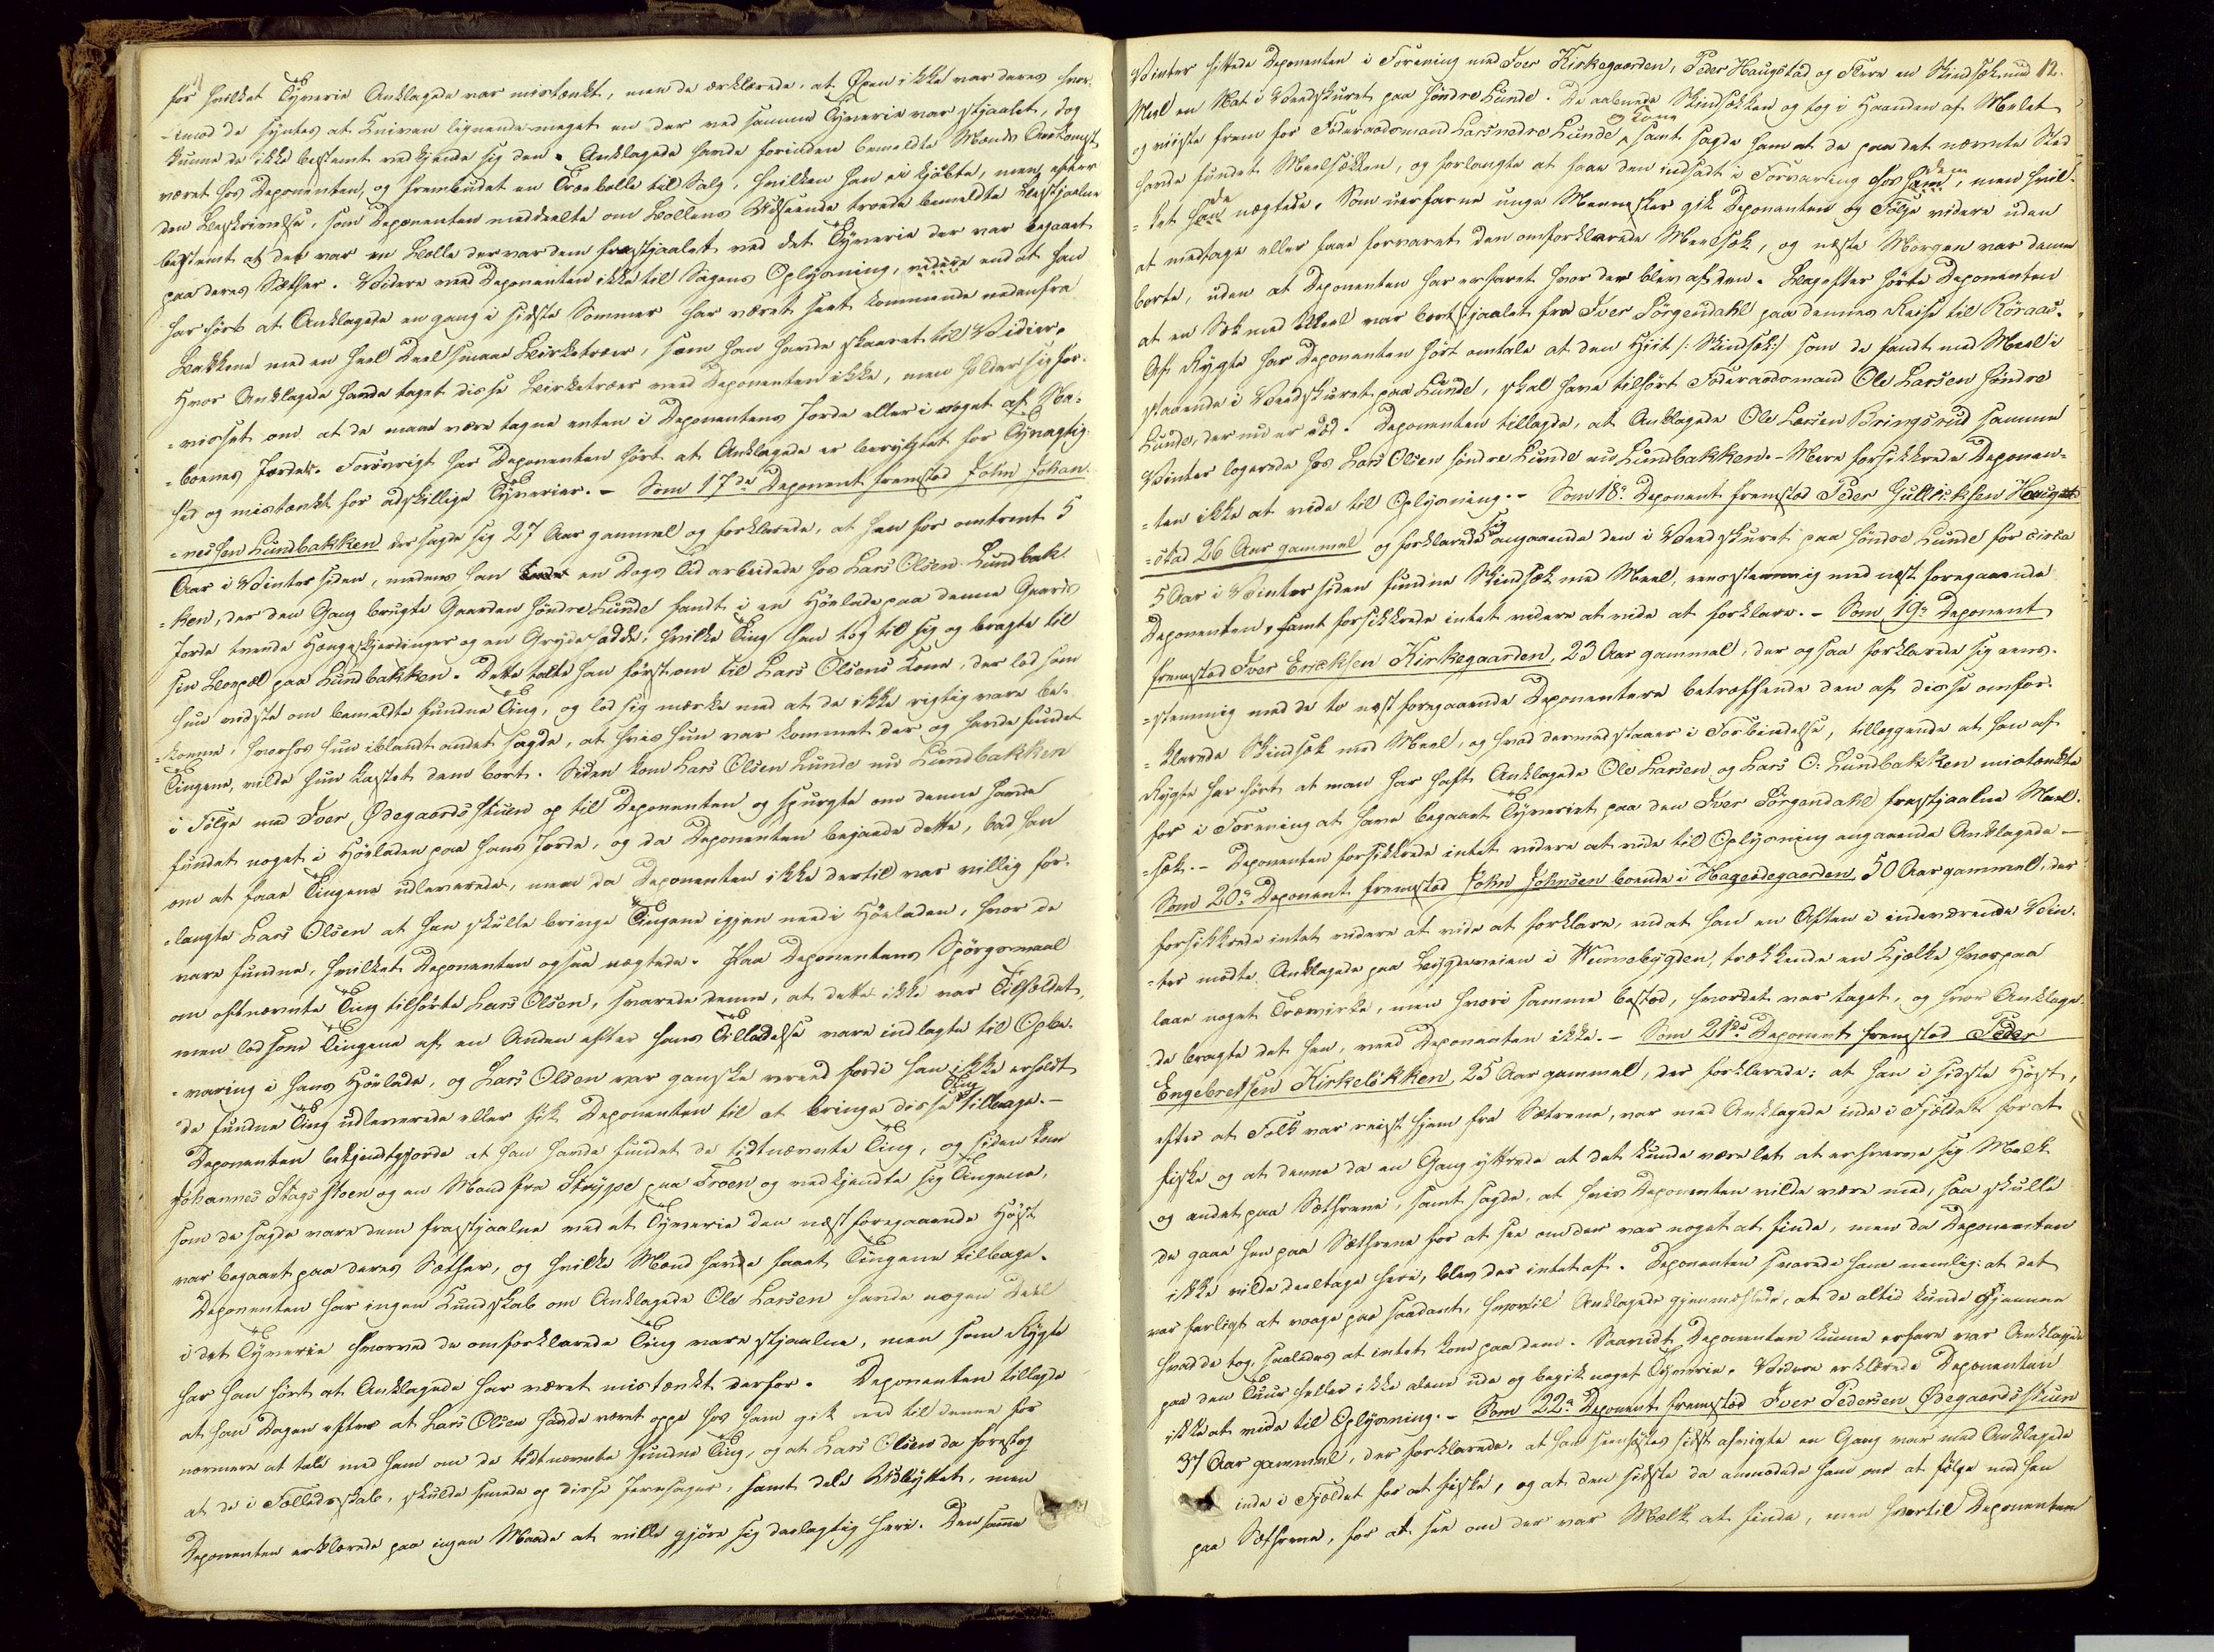 for hvilket Tyverie Anklagede var mistænkt, men de erklærede, at Øxen ikke var deres hvor-
-imod de syntes at Kniven lignede meget en der ved samme Tyverie var stjaalet, dog
kunne de ikke bestemt vedkjende sig den. Anklagede havde forinden bemeldte Mænds Ankomst
været hos Deponenten, og frembudet en Træbolle til Salg, hvilken han ei kjøbte, men efter
den Beskrivelse, som Deponenten meddeelte om Bollens Udseende troede bemeldte Bestjaalne
bestemt at det var en Bolle der var dem frastjaalet ved det Tyverie der var begaaet
paa deres Sæther. Videre veed Deponenten ikke til Sagens Oplysning, videre end at han
har hørt at Anklagede en gang i sidste Sommer har været seet kommende nedenfra
Bakkene med en heel Deel smaae Birketræer, som han havde skaaret til Vidier.
Hvor Anklagede havde taget disse Birketræer veed Deponenten ikke, men holder sig for-
-visset om at de maae være tagne enten i Deponentens Jorde eller i noget af Na-
-boernes Jorder. Forøvrigt har Deponenten hørt at Anklagede er berygtet for Tyvagtig-
hed og mistænkt for adskillige Tyverier. - Som 17de Deponent fremstod John Johan-
-nesssen Lundbakken der sagde sig 27 Aar gammel og forklarede, at han for omtrent 5
Aar i Vinter siden, medens han en Dags Tid arbeidede hos Lars Olsen Lundbak-
-ken, der den Gang brugte Gaarden Søndre Lunde fandt i en Høelade paa denne Gaards
Jorde tvende Hængeskjerdinger og en Grydehadde; hvilke Ting han tog til sig og bragte til
sin Bopæl paa Lundbakken. Dette talte han først om til Lars Olsens Kone, der lod som
hun vidste om bemeldte fundne Ting, og lod sig mærke med at de ikke rigtig vare be-
-komne, hvorhos hun iblandt andet sagde, at hvis hun var kommet der og havde fundet
Tingene, vilde hun kastet dem bort. Siden kom Lars Olsen Lunde nu Lundbakken
i Følge med Iver Ødegaardsstuen op til Deponenten og spurgte om denne havde
fundet noget i Høeladen paa hans Jorde, og da Deponenten bejaede dette, bad han
om at faae Tingene udleverede, men da Deponenten ikke dertil var villig for-
-langte Lars Olsen at han skulle bringe Tingene igjen ned i Høeladen, hvor de
vare fundne, hvilket Deponenten ogsaa nægtede. Paa Deponentens Spørgsmaal
om oftnævnte Ting tilhørte Lars Olsen, svarede denne, at dette ikke var Tilfældet,
men lod som Tingene af en Anden efter hans Tilladelse vare indlagte til Opbe-
-varing i hans Høelade, og Lars Olsen var ganske vreed fordi han ikke erholdt
de fundne Ting udleverede eller fik Deponenten til at bringe disse Ting tilbage. -
Deponenten bekjendtgjorde at han havde fundet de tidtnævnte Ting, og siden kom
Johannes Stagsstoen og en Mand fra Strype paa Froen og vedkjendte sig Tingene,
som de sagde vare dem frastjaalne ved et Tyverie den næstforegaaende Høst
var begaaet paa deres Sæther, og hvilke Mænd havde faaet Tingene tilbage.
Deponenten har ingen Kundskab om Anklagede Ole Larsen havde nogen Deel
i det Tyverie hvorved de omforklarede Ting vare stjaalne, men som Rygte
har han hørt at Anklagede har været mistænkt derfor. Deponenten tillagde
at han Dagen efter at Lars Olsen havde været oppe hos ham gik ned til denne for
nærmere at tale med ham om de tidtnævnte fundne Ting, og at Lars Olsen da foreslog
at de i Fælledsskab, skulde smede op disse Jernsager, samt dele Udbyttet, men
Deponenten erklærede paa ingen Maade at ville gjøre sig deelagtig heri. Den samme
12.
Vinter hittede Deponenten i Forening med Iver Kirkegaarden, Peder Haugstad og Flere en Skindsæk med
Meel en Nat i Veedskuret paa Søndre Lunde. De aabnede Skindsækken og tog i Haanden af Melet
og viiste frem for Føderaadsmand Lars nedre Lunde og Kone samt sagde ham at de paa det nævnte Sted
havde fundet Meelsækken, og forlangte at faae den indsadt i Forvaring hos ham dem, men hvil-
-ket han de nægtede. Som uerfarne unge Mennesker gik Deponenten og Følge videre uden
at medtage eller faae forvaret den omforklarede Meelsæk, og næste Morgen var denne
borte, uden at Deponenten har erfaret hvor der blev af den. Bagefter hørte Deponenten
at en Sæk med Meel var bortstjaalet fra Iver Sörgendahl paa dennes Reise til Röraas.
Af Rygte har Deponenten hørt omtale at den Hiit /: Skindsæk :/ som de fandt med Meel i
staaende i Veedskuret paa Lunde, skal have tilhørt Føderaadsmand Ole Larsen Søndre
Lunde, der nu er död. Deponenten tillagde, at Anklagede Ole Larsen Bringsrud samme
Vinter logerede hos Lars Olsen søndre Lunde nu Lundbakken. - Mere forsikkrede Deponen-
-ten ikke at vide til Oplysning. - Som 18de Deponent fremstod Peder Gulliksen Haug-
-stad 26 Aar gammel og forklarede sig angaaende den i Veedskuret paa söndre Lunde for circa
5 Aar i Vinter siden fundne Skindsæk med Meel, eensstemmig med næst foregaaende
Deponenten, samt forsikkrede intet videre at vide at forklare. - Som 19de Deponent
fremstod Iver Ericksen Kirkegaarden, 23 Aar gammel, der ogsaa forklarede sig eens-
-stemmig med de to næst foregaaende Deponentere betræffende den af disse omfor-
-klarede Skindsæk med Meel, og hvad dermed staaer i Forbindelse, tillæggende at han af
Rygte har hørt at man har haft Anklagede Ole Larsen og Lars O: Lundbakken mistænkte
for i Forening at have begaaet Tyveriet paa den Iver Sörgendahl frastjaalne Meel-
-sæk. - Deponenten forsikkrede intet videre at vide til Oplysning angaaende Anklagede -
Som 20de Deponent fremstod John Johnsen boende i Hageødegaarden, 50 Aar gammel, der
forsikkrede intet videre at vide at forklare, end at han en Aften i indeværende Vin-
-ter mødte Anklagede paa Bygdeveien i Wermebygden, trækkende en Kjælke hvorpaa
laae noget Trævirke, men hvori samme bestod, hvordet var taget, og hvor Anklage-
-de bragte det hen, veed Deponenten ikke. - Som 21de Deponent fremstod Peder
Engebretsen Kirkelökken, 25 Aar gammel, der forklarede: at han i sidste Høst,
efter at Folk var reist hjem fra Sætrene, var med Anklagede inde i Fjeldet for at
fiske og at denne da en Gang yttrede at det kunde være let at erhverve sig Melk
og andet paa Sæthrene, samt sagde, at hvis Deponenten vilde være med, saa skulle
de gaae hen paa Sæthrene for at see om der var noget at finde, men da Deponenten
ikke vilde deeltage heri, blev der intet af. Deponenten svarede ham nemlig: at det
var farligt at vaage paa saadant, hvortil Anklagede gjenmælede, at de altid kunde gjemme
hvad de tog, saaledes at intet kom paa dem. Saavidt Deponenten kunne erfare var Anklagede
paa den Tuur heller ikke alene ude og begik noget Tyverie. Videre erklærede Deponenten
ikke at vide til Oplysning. - Som 22de Deponent fremstod Iver Pedersen Ødegaardsstuen
37 Aar gammel, der forklarede, at han seenhøstes sidst afvigte en Gang var med Anklagede
inde i Fjeldet for at fiske, og at den sidste da anmodede ham om at følge med hen
paa Sæthrene, for at see om der var Melk at finde, men hvortil Deponenten